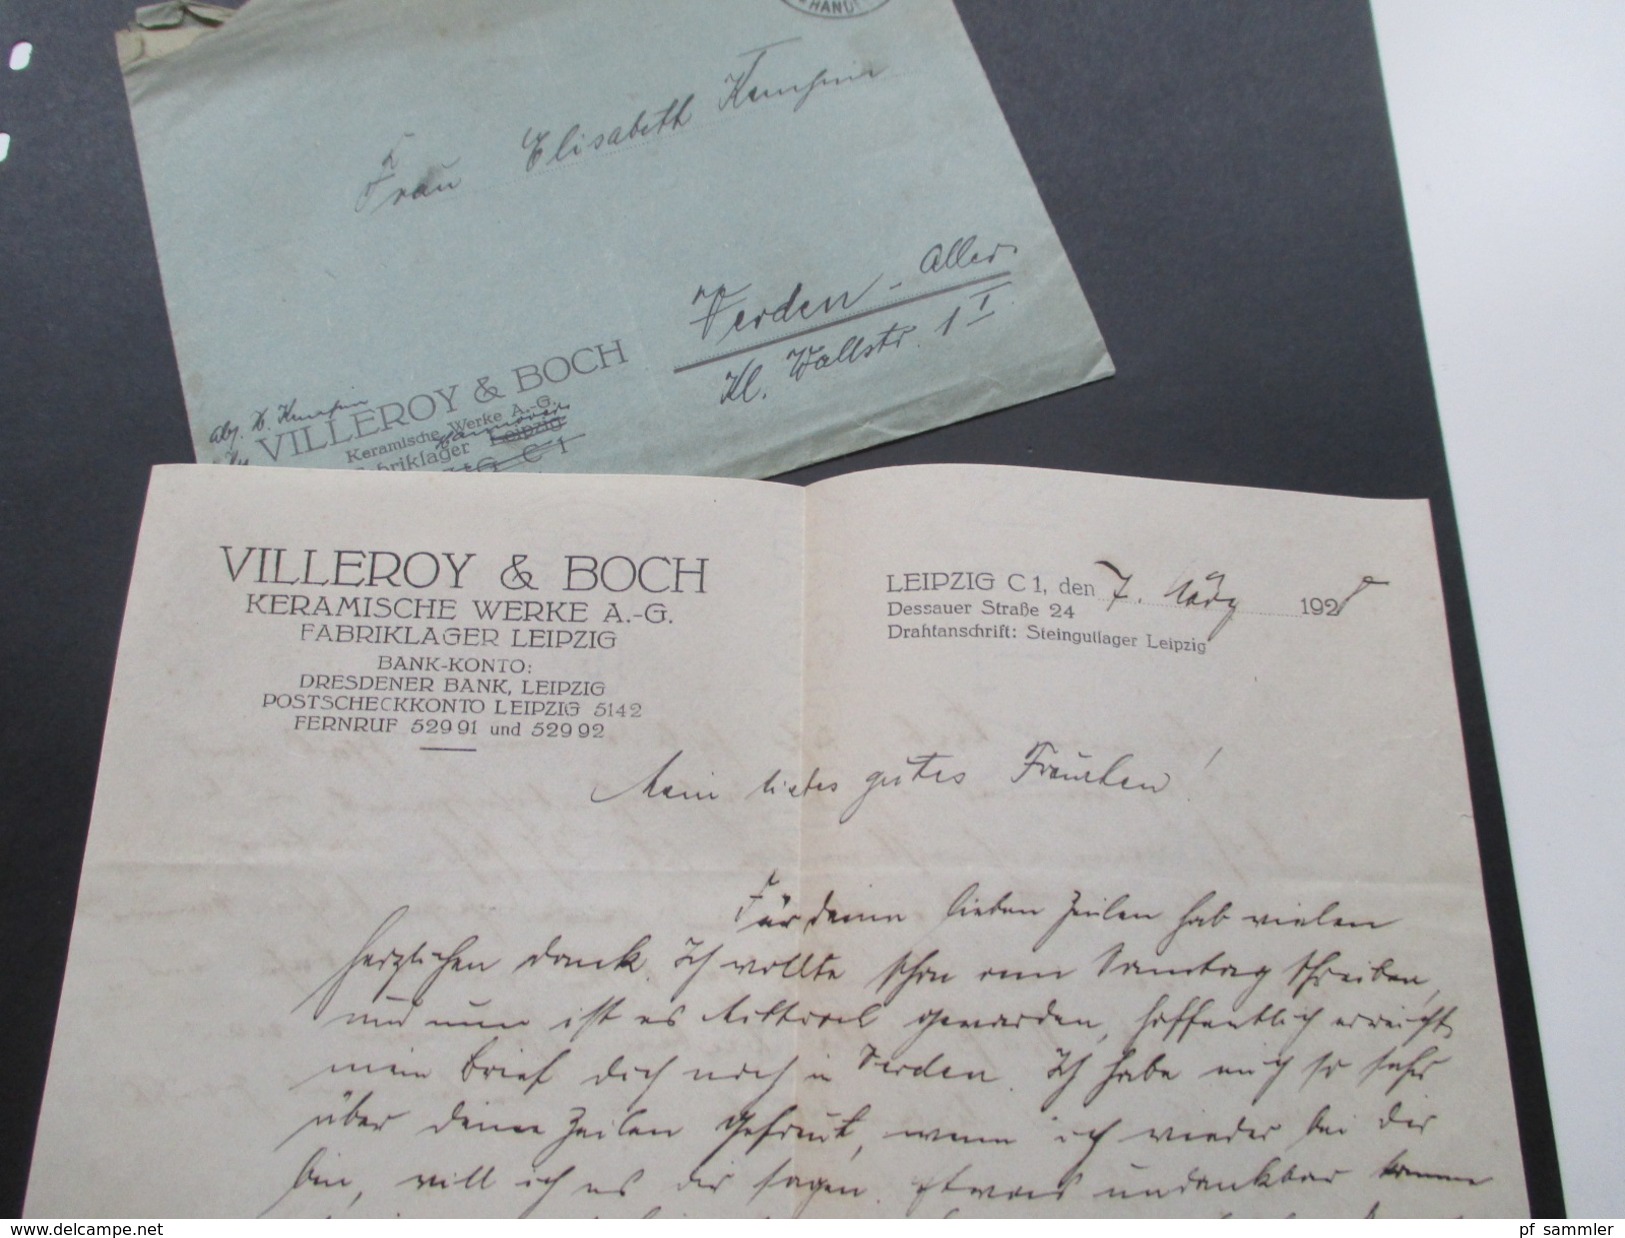 HAND
Frau Elisabeth
Verden - Aller.
Kl. Wallstr. 1 I
VILLEROY & BOCH
Keramische Werke A.-G.
Fabriklager Leipzig
C 1
VILLEROY & BOCH
KERAMISCHE WERKE A.-G.
FABRIKLAGER LEIPZIG
BANK-KONTO:
DRESDENER BANK, LEIPZIG
POSTSCHECKKONTO LEIPZIG 5142
FERNRUF 52991 und 52992
LEIPZIG C 1, den 7. März 1928
Dessauer Straße 24
Drahtanschrift: Steingutlager Leipzig
Mein liebes gutes Frauchen!
Für deine lieben Zeilen hab vielen
herzlichen Dank. Ich wollte schon am Samstag schreiben,
und nun ist es Mittwoch geworden, hoffentlich erreicht
mein Brief dich noch in Verden. Ich habe mich so sehr
über deine Zeilen gefreut, wenn ich wieder bei dir
bin, will ich es dir sagen. Etwas undankbar komme
delcampe.net
pf_sammler